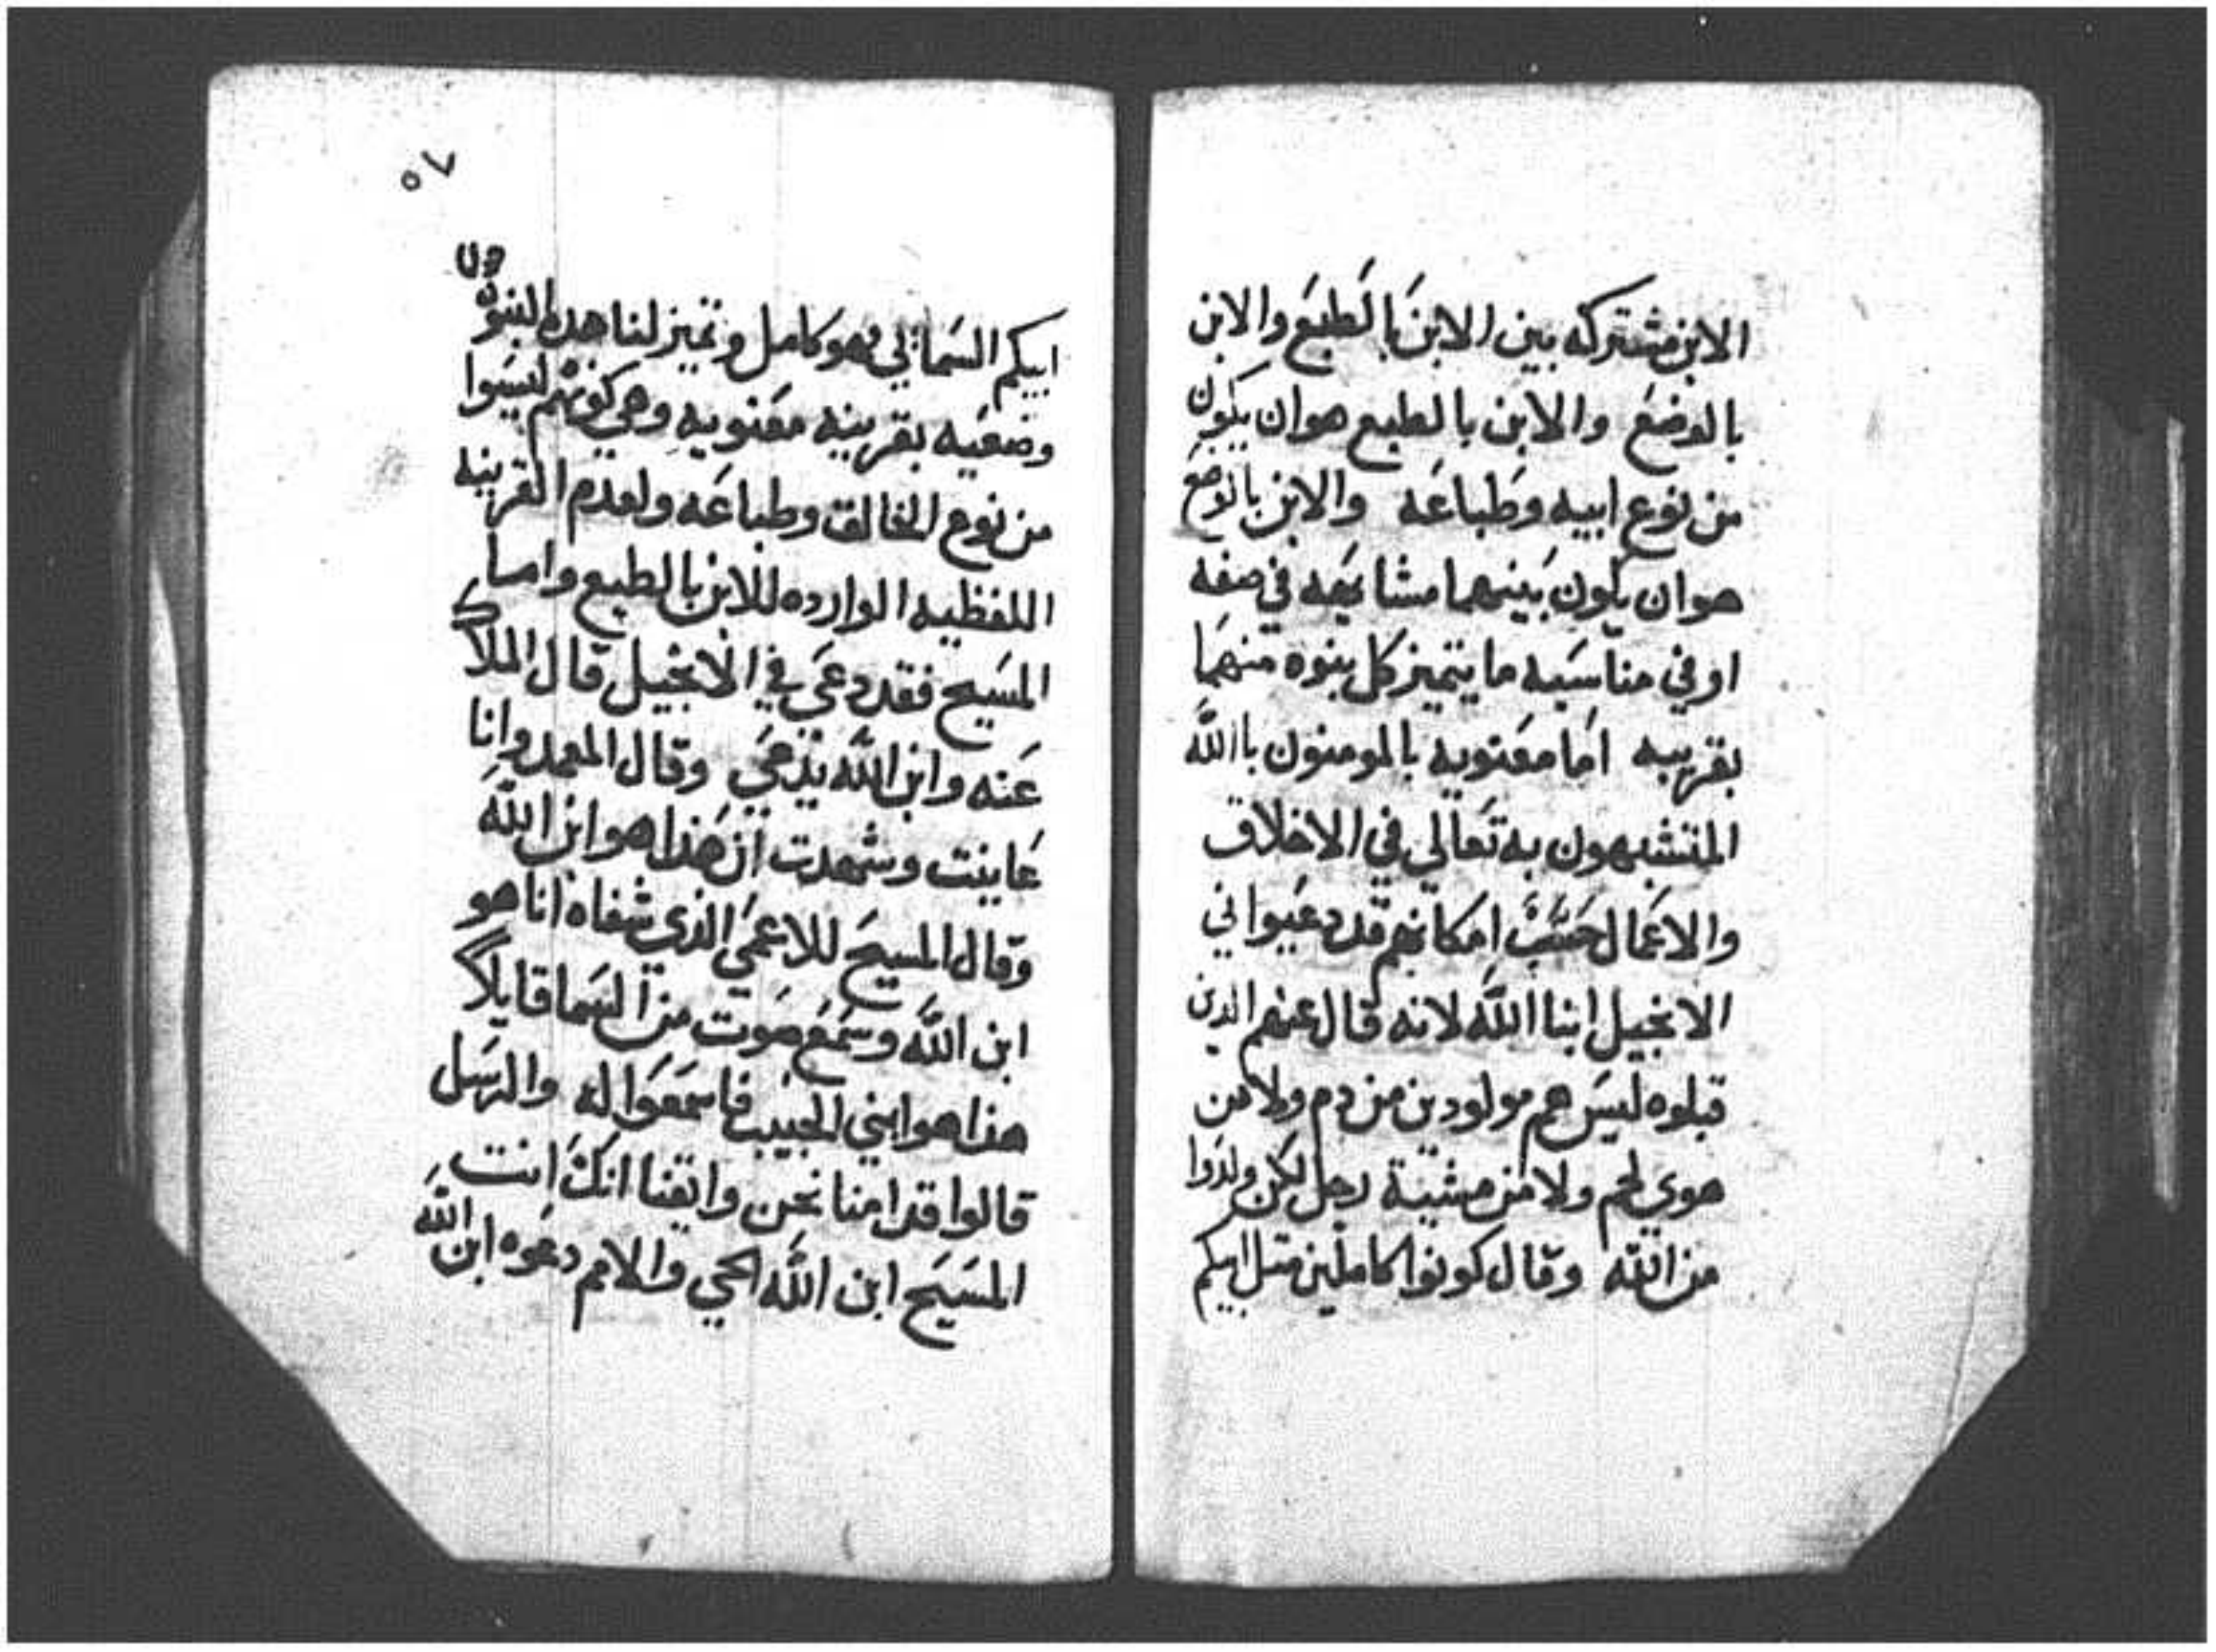 الابن مشتركه بين الابن بالطبع والابن
بالوضع والابن بالطبع هو ان يكون
من نوع ابيه وطباعه والابن بالوضع
هو ان يكون بينهما مشابهه في صفه
او في مناسبه ما يتميز كل بنوه منهما
بقرينه اما معنويه بالمومنون باالله
المتشبهون به تعالي في الاخلاق
والاعمال حسب امكانهم قد دعيوا في
الانجيل ابنا الله لانه قال عنهم الدين
قبلوه ليس هم مولودين من دم ولا من
هوي لحم ولا من مشية رجل لكن ولدوا
من الله وقال كونوا كاملين متل ابيكم
٧٥
ابيكم السماي فهو كامل وتميز لنا هده البنوة
وضعيه بقرينه معنويه وهي كونهم ليسوا
من نوع الخالق وطباعه ولعدم القرينه
اللفظيه الوارده للابن بالطبع واما
المسيح فقد دعي في الانجيل قال الملاك
عنه وابن الله يدعي وقال المعمد وانا
عاينت وشهدت ان هذا هو ابن الله
وقال المسيح للاعمي الذي شفاه انا هو
ابن الله وسمع صوت من السما قايلاً
هذا هو ابني الحبيب فاسمعوا له والرسل
قالوا قد امنا نحن وايقنا انك انت
المسيح ابن الله الحي والامم دعوه ابن الله